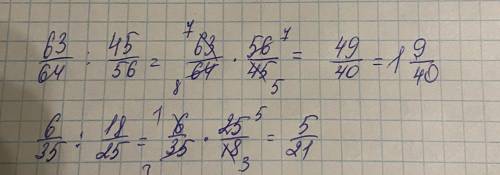 63/64 : 45/56 = 7 63/64 8 · 56 7/45 5 = 49/40 = 1 9/40
6/35 : 18/25 = 1 6/35 7 · 25 5/18 3 = 5/21